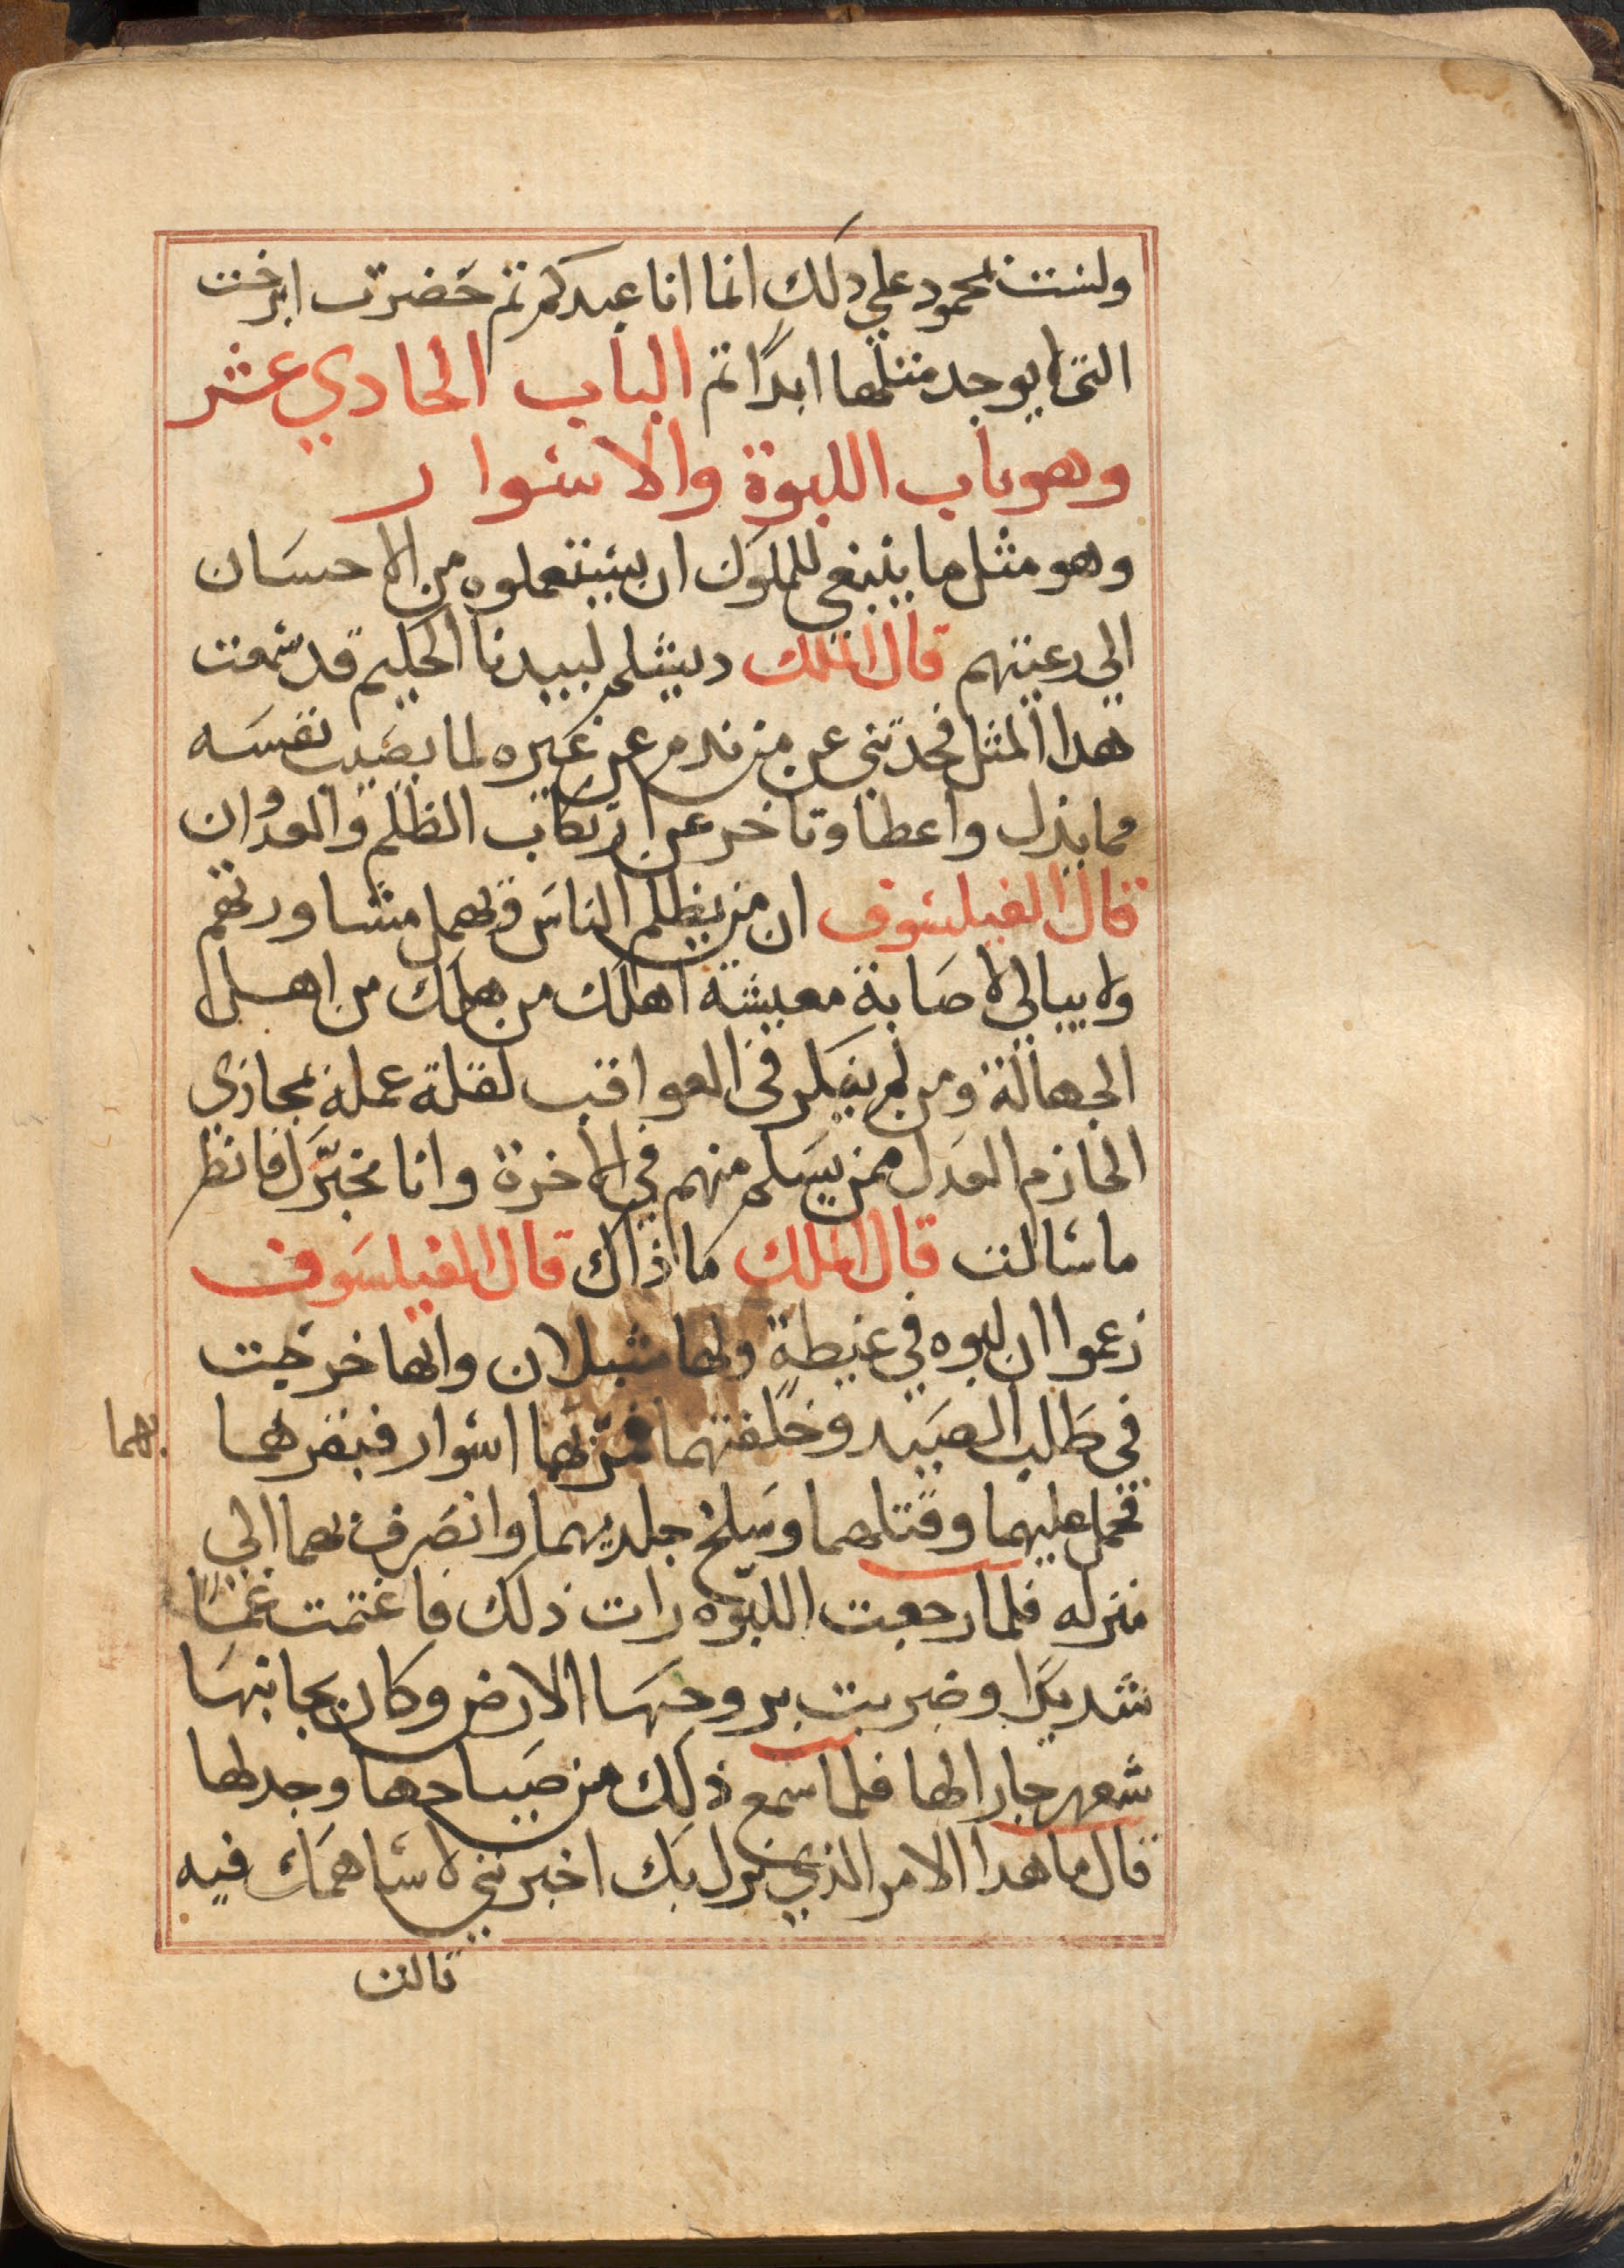 ولست بمحمود علي دلك انما انا عبدكم تم حضرت ابرخت
التي لا يوجد متلها ابدًا تم الباب الحادي عشر
وهو باب اللبوة والاسوار
وهو مثل ما ينبغي للملوك ان يستعملوه من الاحسان
الي رعيتهم قال الملك ديشلم لبيدبا الحليم قد سمعت
هدا المثل فحدثني عن من ندم عن غيره لما يصيب نفسه
مما بذل واعطا وتاخر عن ارتكاب الظلم والعدوان
قال الفيلسوف ان من يظلم الناس ويهمل مشاورتهم
ولا يبالي لاصابة معيشة اهلك من هلك من اهل
الجهالة ومن لم يفكر في العواقب لقلة عمله بمجازي
الحازم العدل ممن يسلم منهم في الاخرة وانا مخبرك فانظر
ما سالت قال الملك ما ذاك قال الفيلسوف
زعموا ان لبوه في غيطة ولها شبلان وانها خرجت
في طلب الصيد وخلفتهما فمر بها اسوار فبقرهما
بهما
فحمل عليهما وقتلهما وسلخ جلديهما وانصرف بهما الي
منزله فلما رجعت اللبوه رات ذلك فاغتمت غمًا
شديدًا وضربت بروحها الارض وكان بجانبها
شعهر جارا لها فلما سمع ذلك من صياحها وجدلها
قال ما هدا الامر الذي نزل بك اخبريني لاساهمك فيه
قالت